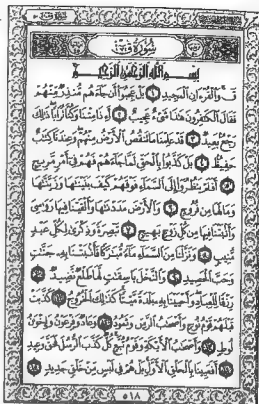 سُورَةُ قٓ
بِسْمِ اللَّهِ الرَّحْمَٰنِ الرَّحِيمِ
قٓ وَالْقُرْءَانِ الْمَجِيدِ ١ بَلْ عَجِبُوا أَن جَاءَهُم مُّنذِرٌ مِّنْهُمْ
فَقَالَ الْكَٰفِرُونَ هَٰذَا شَيْءٌ عَجِيبٌ ٢ أَءِذَا مِتْنَا وَكُنَّا تُرَابًا ذَٰلِكَ
رَجْعٌ بَعِيدٌ ٣ قَدْ عَلِمْنَا مَا تَنقُصُ الْأَرْضُ مِنْهُمْ وَعِندَنَا كِتَٰبٌ
حَفِيظٌ ٤ بَلْ كَذَّبُوا بِالْحَقِّ لَمَّا جَاءَهُمْ فَهُمْ فِي أَمْرٍ مَّرِيجٍ
٥ أَفَلَمْ يَنظُرُوا إِلَى السَّمَاءِ فَوْقَهُمْ كَيْفَ بَنَيْنَٰهَا وَزَيَّنَّٰهَا
وَمَا لَهَا مِن فُرُوجٍ ٦ وَالْأَرْضَ مَدَدْنَٰهَا وَأَلْقَيْنَا فِيهَا رَوَٰسِيَ
وَأَنبَتْنَا فِيهَا مِن كُلِّ زَوْجٍ بَهِيجٍ ٧ تَبْصِرَةً وَذِكْرَىٰ لِكُلِّ عَبْدٍ
مُّنِيبٍ ٨ وَنَزَّلْنَا مِنَ السَّمَاءِ مَاءً مُّبَٰرَكًا فَأَنبَتْنَا بِهِ جَنَّٰتٍ
وَحَبَّ الْحَصِيدِ ٩ وَالنَّخْلَ بَاسِقَٰتٍ لَّهَا طَلْعٌ نَّضِيدٌ ١٠
رِّزْقًا لِّلْعِبَادِ وَأَحْيَيْنَا بِهِ بَلْدَةً مَّيْتًا كَذَٰلِكَ الْخُرُوجُ ١١ كَذَّبَتْ
قَبْلَهُمْ قَوْمُ نُوحٍ وَأَصْحَٰبُ الرَّسِّ وَثَمُودُ ١٢ وَعَادٌ وَفِرْعَوْنُ وَإِخْوَٰنُ
لُوطٍ ١٣ وَأَصْحَٰبُ الْأَيْكَةِ وَقَوْمُ تُبَّعٍ كُلٌّ كَذَّبَ الرُّسُلَ فَحَقَّ وَعِيدِ
١٤ أَفَعَيِينَا بِالْخَلْقِ الْأَوَّلِ بَلْ هُمْ فِي لَبْسٍ مِّنْ خَلْقٍ جَدِيدٍ ١٥
٥١٨